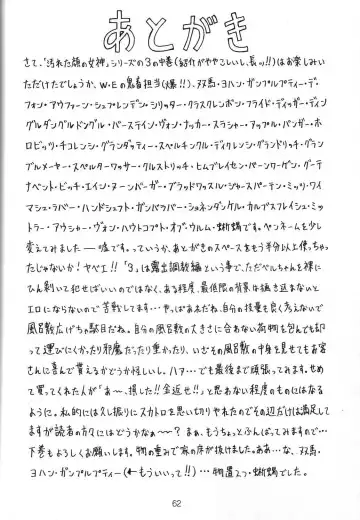 あとがき
さて、「汚れた顔の女神」シリーズの3の中巻(紹介がややこしいし、長ッ!!)はお楽しみい
ただけたでしょうか、W・Eの鬼畜担当(爆!!)、双馬・ヨハン・ガンプルプティー・デ・
フォン・アウファーン・シュプレンデン・シリッター・クラスクレンボン・フライド・ディッガー・ディン
グルダングルドングル・バーステイン・ヴォン・ナッカー・スラシャー・アップル・バンガー・ホ
ロビッツ・チコレンシ・グランダッティー・スペルキンクル・ディクレンジ・グランドリッチ・グラン
ブルメーヤー・スペルターワッサー・クルストリッチ・ヒムブレイセン・バーンワーゲン・グーテ
ナベント・ビッテ・エイン・ヌーンバーガー・ブラッドワッスル・ジャースパーテン・ミッツ・ワイ
マシュ・ラバー・ハンドシュフト・ガンバラバー・ショネンダンケル・カルプスフレイシュ・ミッ
トラー・アウシャー・ヴォン・ハウトコプト・オブ・ウルム・蜥蜴です。ペンネームを少し
変えてみました——嘘です。っていうか、あとがきのスペースをもう半分以上使っちゃっ
たじゃないか!ヤベエ!!「3」は露出調教編という事で、ただベルちゃんを裸に
ひん剥いて犯せばいいのではなく、ある程度、最低限の背景を描き込まないと
エロにならないので苦戦してます…やっぱあまだね、自分の技量も良く考えないで
風呂敷広げちゃ駄目だね。自分の風呂敷の大きさに合わない荷物を包んでも却
って運びにくかったり邪魔だったり重かったり、いざその風呂敷の中身を見せてもお客
さんに喜んで貰えるかどうか怪しいし。ハァ…でも最後まで頑張ってみます。せめ
て買ってくれた人が「あ〜、損した!!金返せ!!」と思わない程度のものにはなる
ように。私的には久し振りにスカトロを思い切りやれたのでその辺だけは満足して
ますが読者の方々にはどうかなぁ〜?まぁ、もうちょっとふんばってみますので…
下巻もよろしくお願いします。物の重みで家の床が抜けました。ああ…な、双馬・
ヨハン・ガンプルプティー(←もういいって!!)…物置エつ・蜥蜴でした。
62